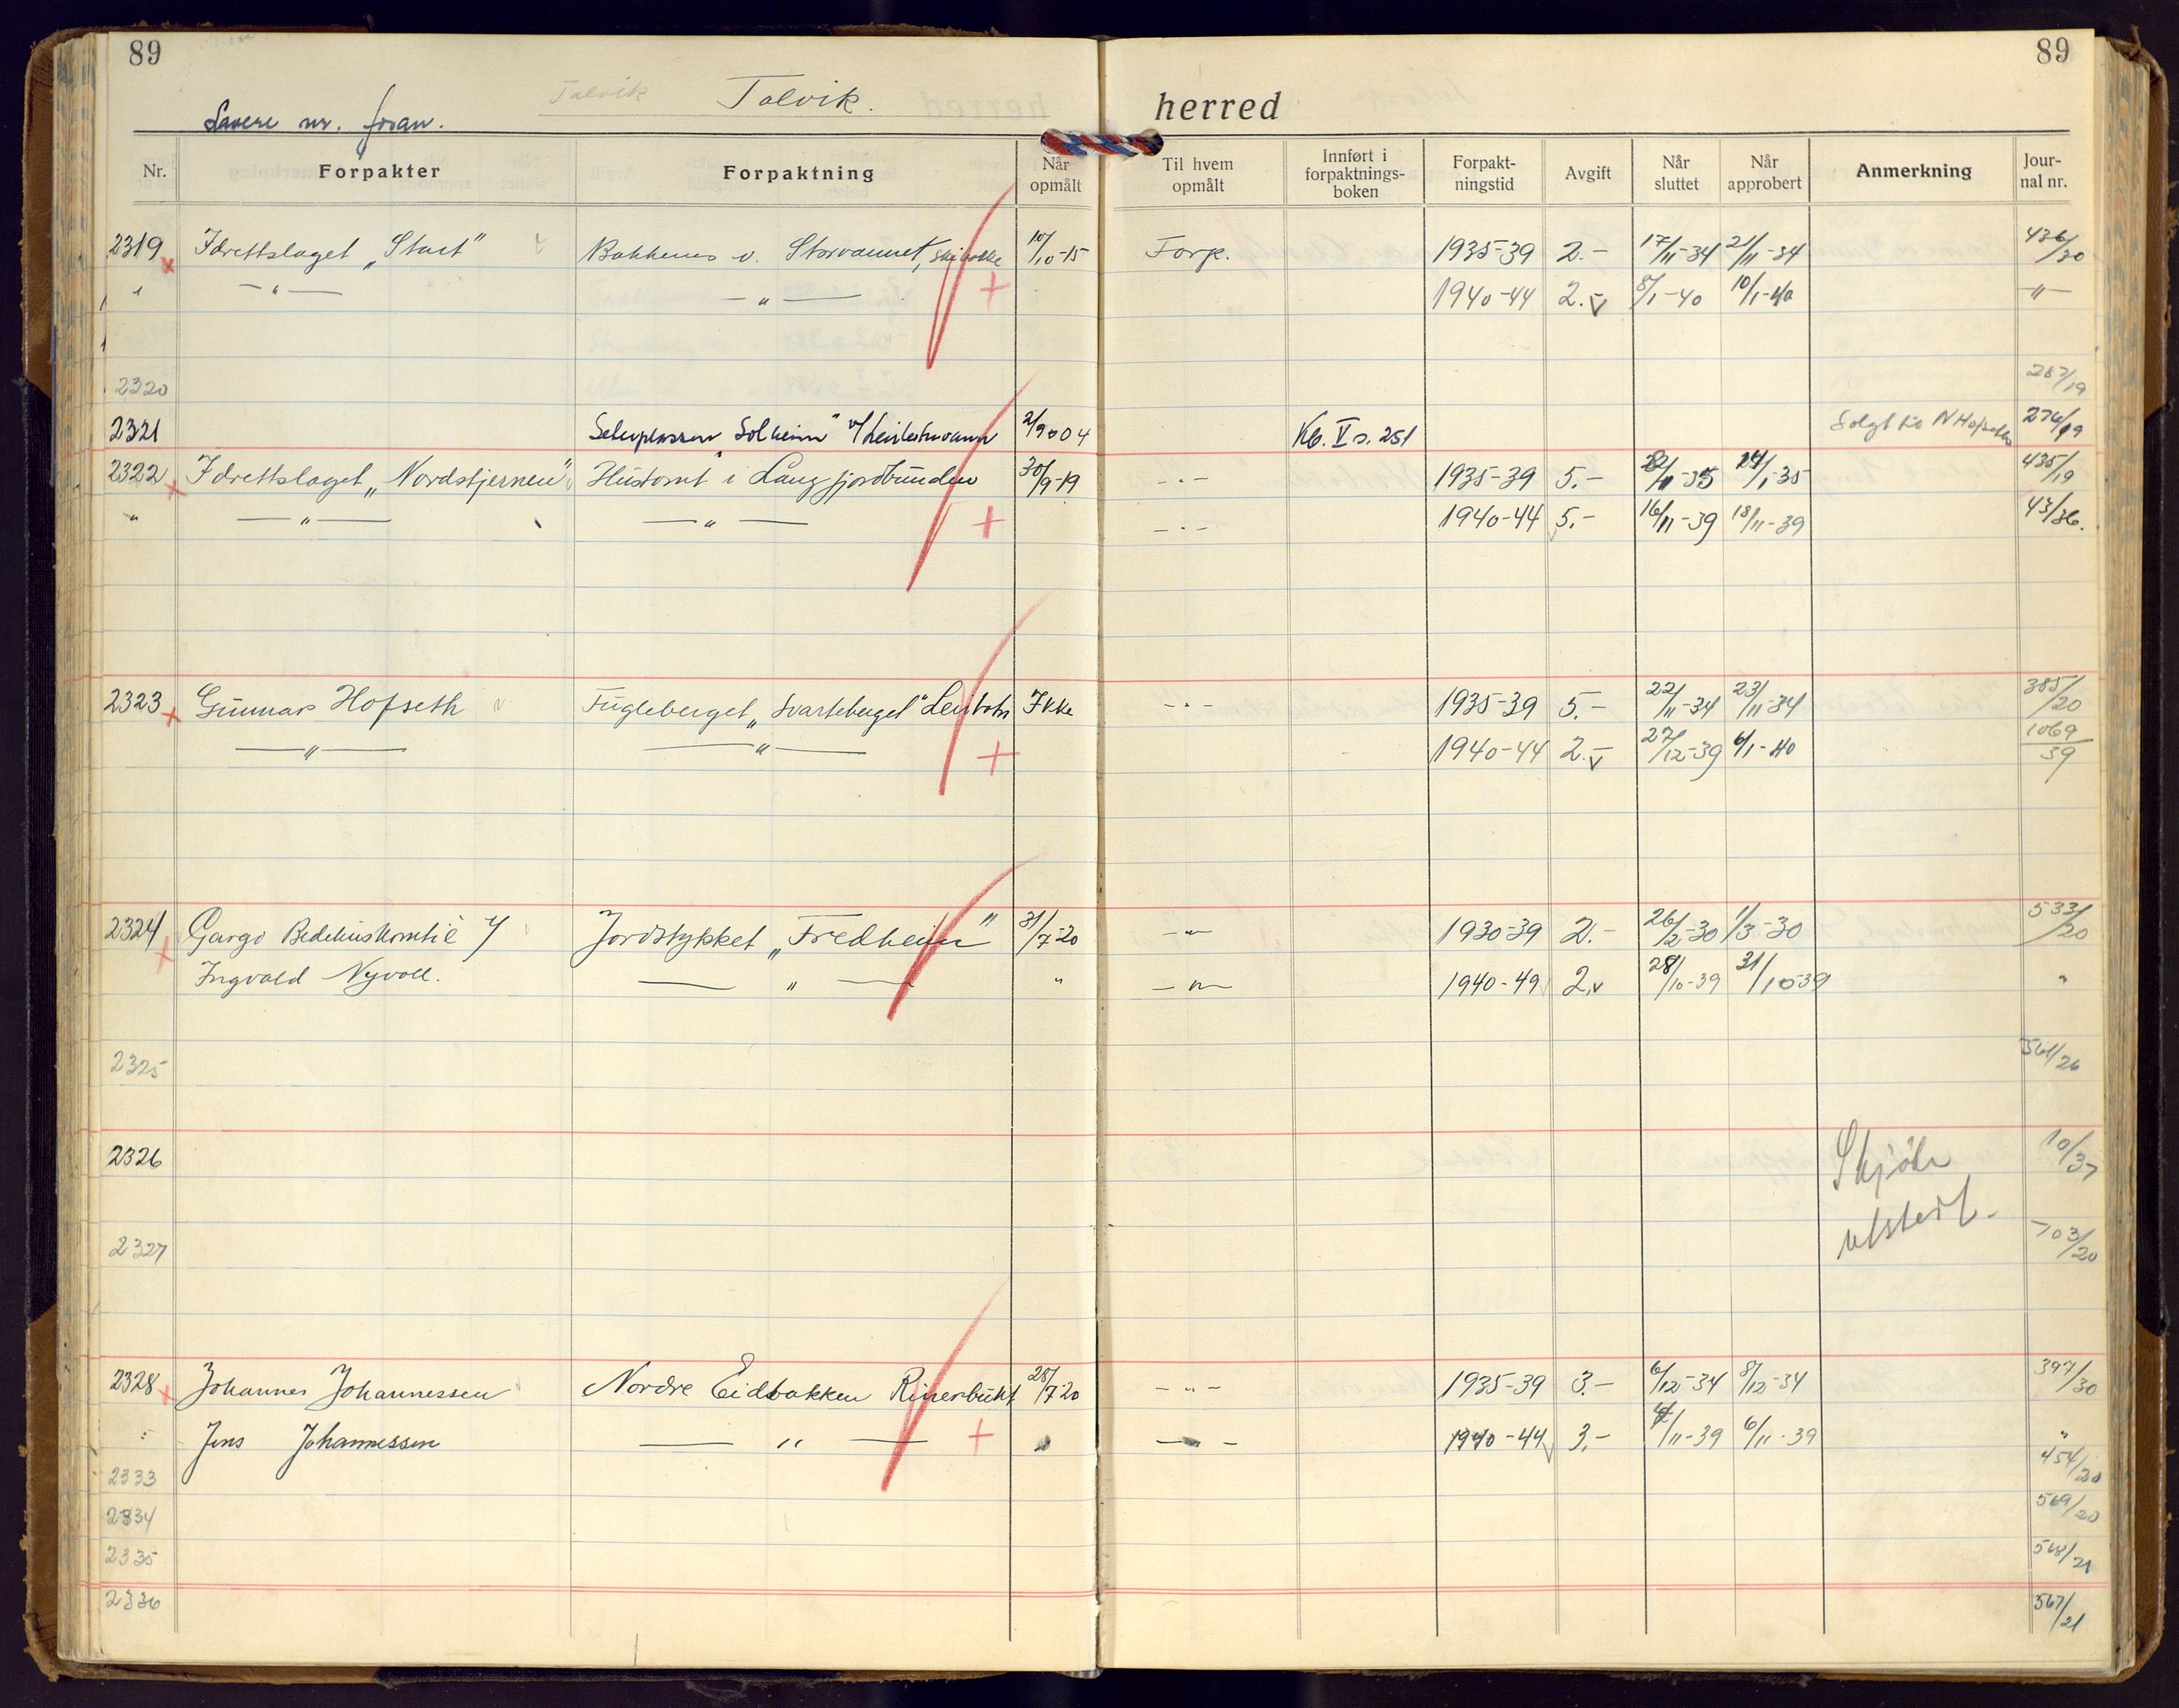 89
89
Talvik Talvik. herred
Lavere nr. foran.
Nr. Forpakter Forpaktning Når opmålt Til hvem opmålt Innført i forpaktnings-boken Forpakt-ningstid Avgift Når sluttet Når approbert Anmerkning Jour-nal nr.
2319 Idrettslaget „Start" Bakkenes v. Storvannet, skibakke 10/10-15 Forp. 1935-39 2.- 17/11-34 21/11-34 436/30
" —"— —"— 1940-44 2.- 8/1-40 10/1-40 —"—
2320 267/19
2321 Seterplassen „Solheim" v/ 2/9-04 Kb. V s. 251 Solgt til N Hofseth 276/19
2322 Idrettslaget „Nordstjernen" Hustomt i Langfjordbunden 30/9-19 -"- 1935-39 5.- 22/11-35 24/1-35 435/19
" —"— —"— -"- 1940-44 5.- 16/11-39 18/11-39 43/36.
2323 Gunnar Hofseth Fugleberget „Svarteberget" Leirbotn Ikke -"- 1935-39 5.- 22/11-34 23/11-34 385/20
—"— —"— 1940-44 2.- 27/12-39 6/1-40 1069/39
2324 Gargo Bedehuskomité v/ Jordstykket „Fredheim" 31/7-20 -"- 1930-39 2.- 26/2-30 1/3-30 533/20
Ingvald Nyvoll. —"— " -"- 1940-49 2. 28/10-39 31/10-39 "
2325 561/26
2326 Skjøte 10/37
utstedt.
2327 703/20
2328 Johannes Johannessen Nordre Eidbakken Riverbukt 28/7-20 -"- 1935-39 3.- 6/12-34 8/12-34 397/30
" Jens Johannessen —"— " -"- 1940-44 3.- 4/11-39 6/11-39 "
2333 454/20
2334 569/20
2335 568/21
2336 567/21